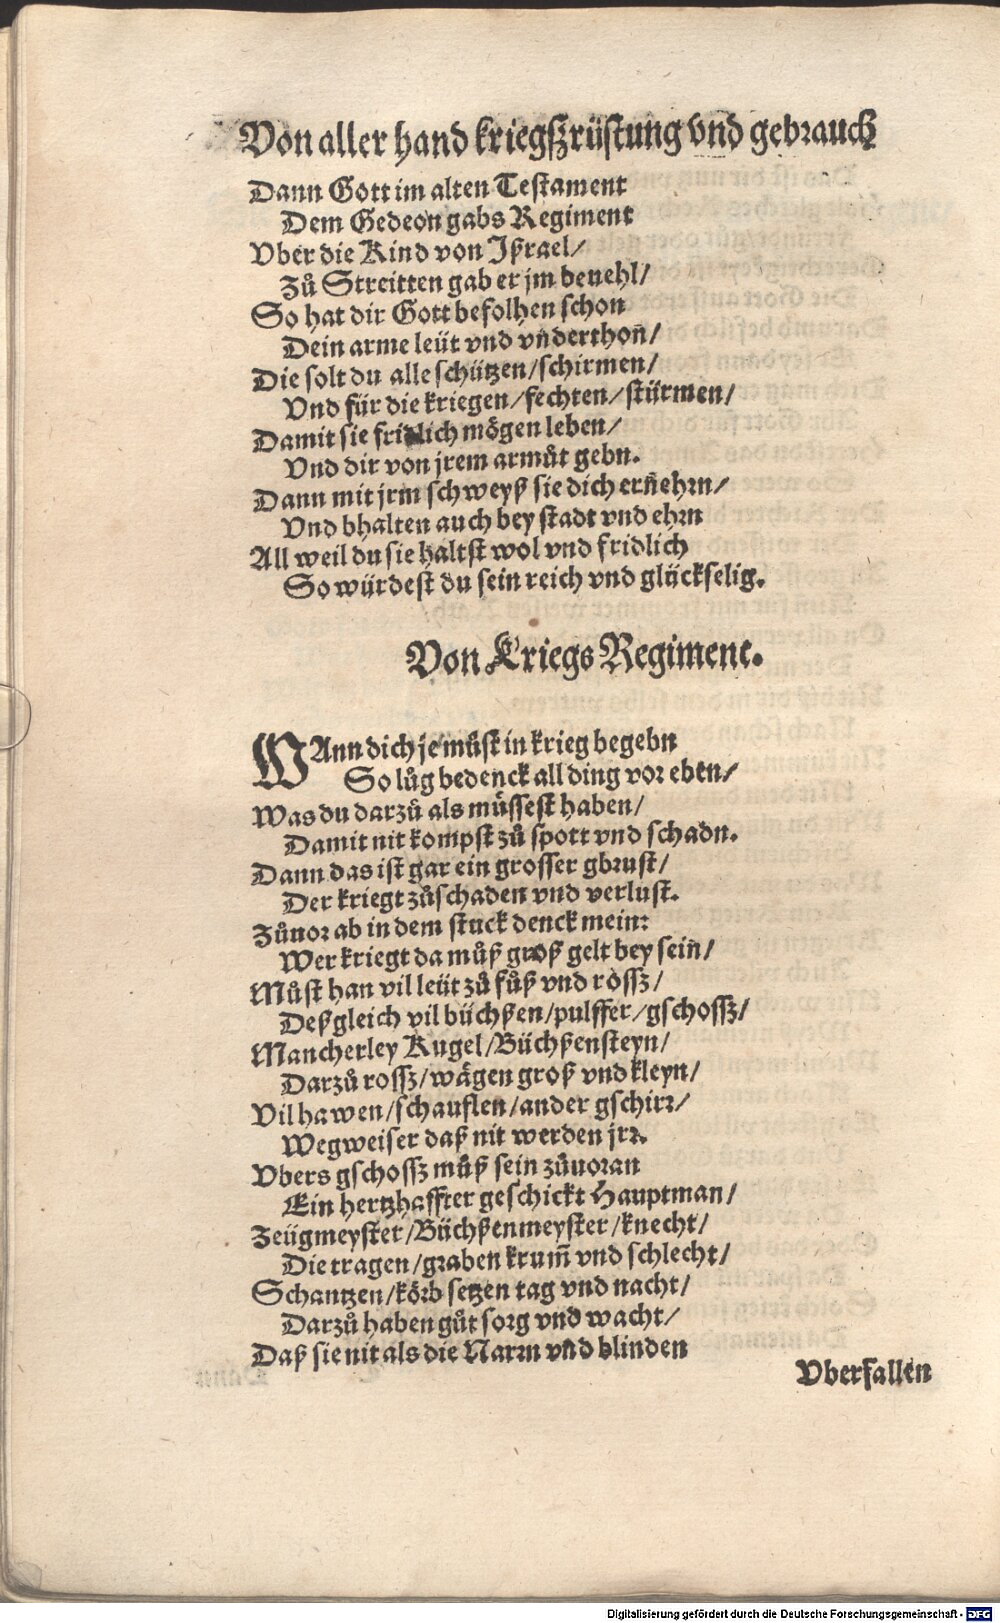 Von aller hand kriegßrüstung vnd gebrauch
Dann Gott im alten Testament
Dem Gedeon gabs Regiment
Vber die Kind von Jßrael/
Zů Streitten gab er jm beuehl/
So hat dir Gott befolhen schon
Dein arme leüt vnd vnderthon̄/
Die solt du alle schützen/schirmen/
Vnd für die kriegen/fechten/stürmen/
Damit sie fridlich mögen leben/
Vnd dir von jrem armůt gebn.
Dann mit jrm schweyß sie dich ern̄ehrn/
Vnd bhalten auch bey stadt vnd ehrn
All weil du sie haltst wol vnd fridlich
So würdest du sein reich vnd glückselig.
Von Kriegs Regiment.
WAnn dich je můst in krieg begebn
So lůg bedenck all ding vor eben/
Was du darzů als müssest haben/
Damit nit kompst zů spott vnd schadn.
Dann das ist gar ein grosser gbrust/
Der kriegt zůschaden vnd verlust.
Zůuor ab in dem stuck denck mein:
Wer kriegt da můß groß gelt bey sein̄/
Můst han vil leüt zů fůß vnd rossz/
Deßgleich vil büchßen/pulffer/gschossz/
Mancherley Kugel/Büchßensteyn/
Darzů rossz/wägen groß vnd kleyn/
Vil hawen/schauflen/ander gschirr/
Wegweiser daß nit werden jrr.
Vbers gschossz můß sein zůuoran
Ein hertzhaffter geschickt Hauptman/
Zeügmeyster/Büchßenmeyster/knecht/
Die tragen/graben krum̄ vnd schlecht/
Schantzen/körb setzen tag vnd nacht/
Darzů haben gůt sorg vnd wacht/
Daß sie nit als die Narrn vnd blinden
Vberfallen
Digitalisierung gefördert durch die Deutsche Forschungsgemeinschaft - DFG